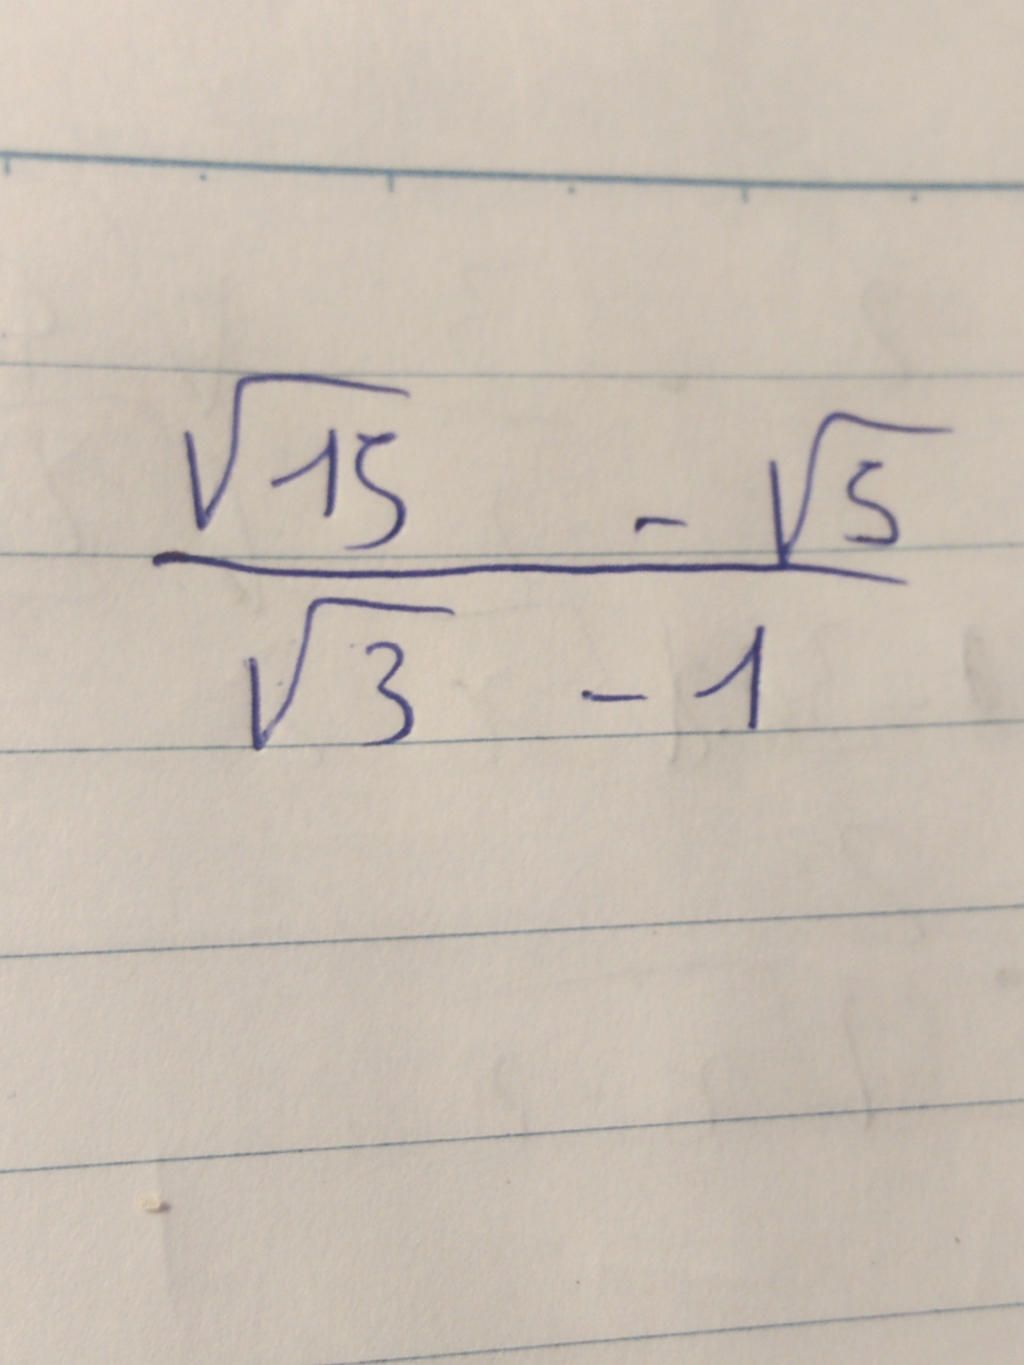 √15 - √5
√3 - 1